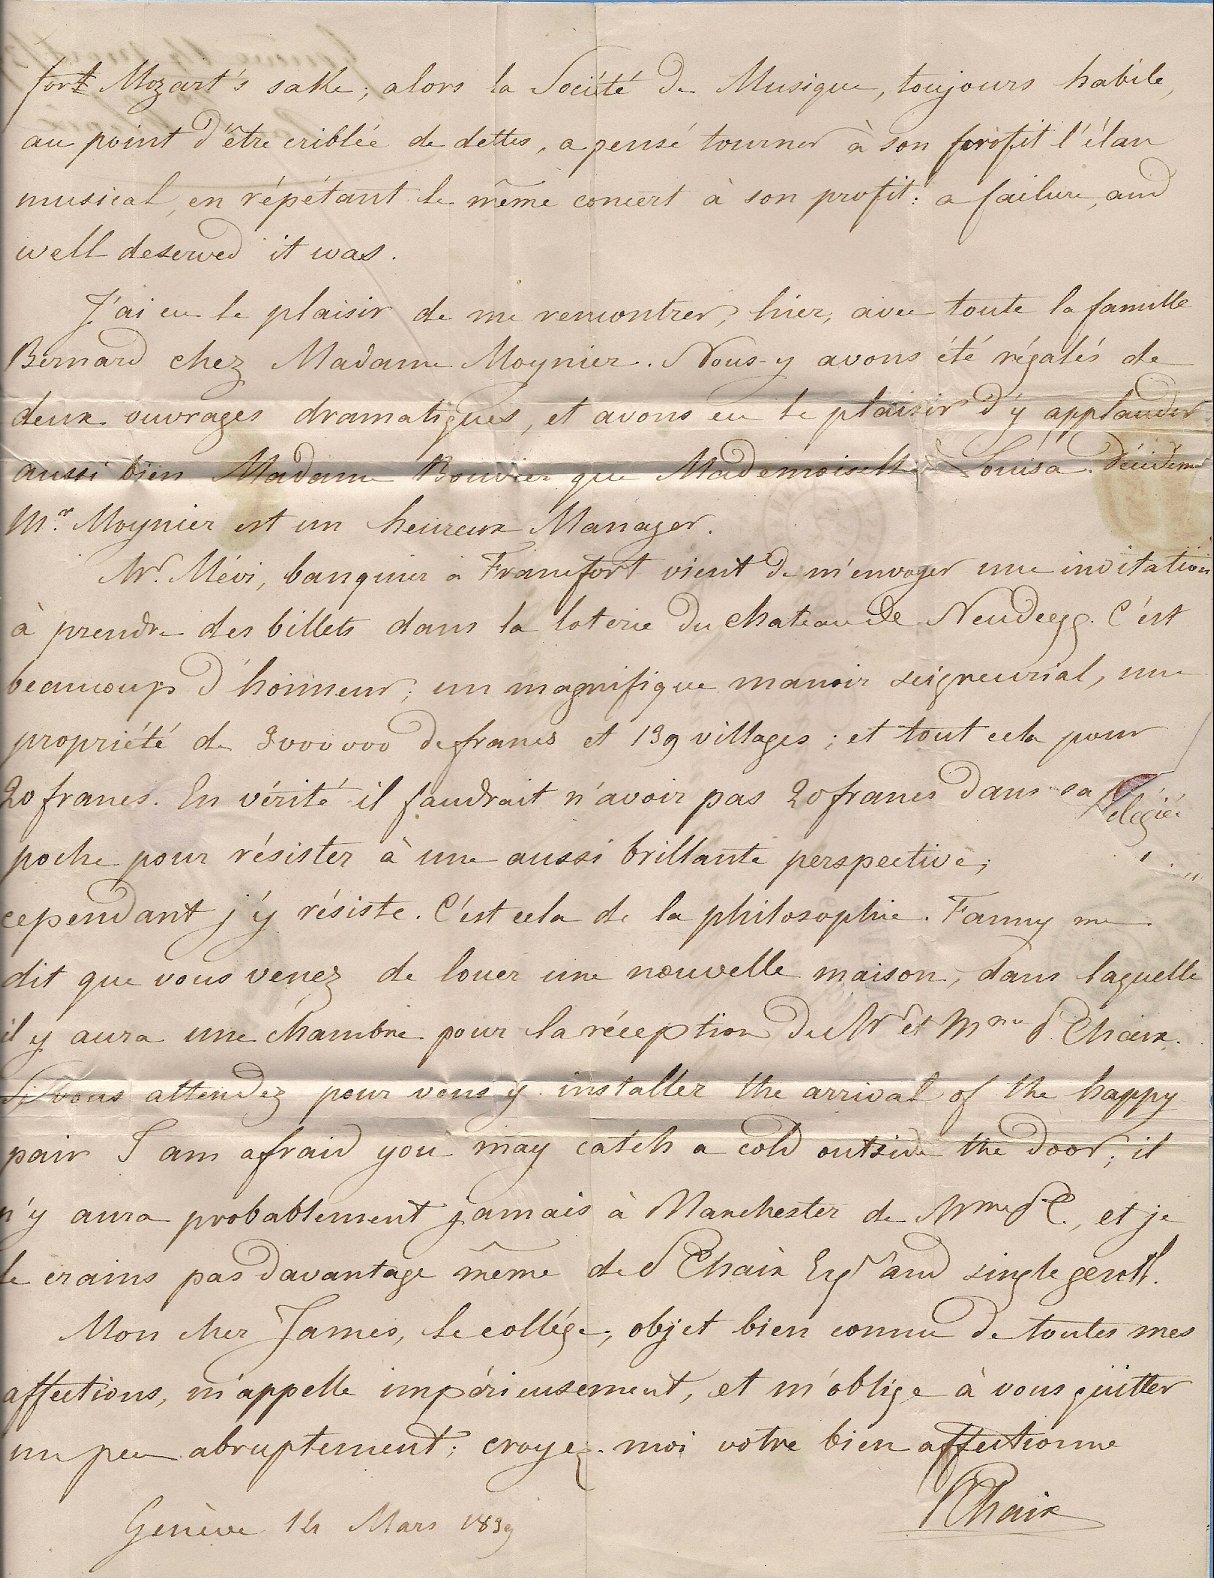 for Mozart's sake; alors la Société de Musique, toujours habile,
au point d'être criblée de dettes, a pensé tourner à son profit l'élan
musical, en répétant le même concert à son profit: a failure, and
well deserved it was.
J'ai eu le plaisir de me rencontrer, hier, avec toute la famille
Bernard chez Madame Moynier. Nous y avons été régalés de
deux ouvrages dramatiques, et avons eu le plaisir d'y applaudir
aussi bien Madame Bouvier que Mademoiselle Louisa. Décidemt
Mr. Moynier est un heureux Manager.
Mr. Mévi, banquier à Francfort vient de m'envoyer une invitation
à prendre des billets dans la loterie du chateau de Neudegg. C'est
beaucoup d'honneur; un magnifique manoir seigneurial, une
propriété de 3000000 de francs et 139 villages; et tout cela pour
20 francs. En vérité il faudrait n'avoir pas 20 francs dans sa
poche pour résister à une aussi brillante perspective;
cependant j'y résiste. C'est cela de la philosophie. Fanny me
dit que vous venez de louer une nouvelle maison, dans laquelle
il y aura une chambre pour la réception de Mr et Mme P. Chaix.
Si vous attendez pour vous y installer the arrival of the happy
pair I am afraid you may catch a cold outside the door; il
n'y aura probablement jamais à Manchester de Mme P C., et je
le crains pas davantage même de P Chaix Esqr and single gentl.
Mon cher James, le collége, objet bien connu de toutes mes
affections, m'appelle impérieusement, et m'oblige à vous quitter
un peu abruptement; croyez-moi votre bien affectionné
PChaix
Genève 14 Mars 1839